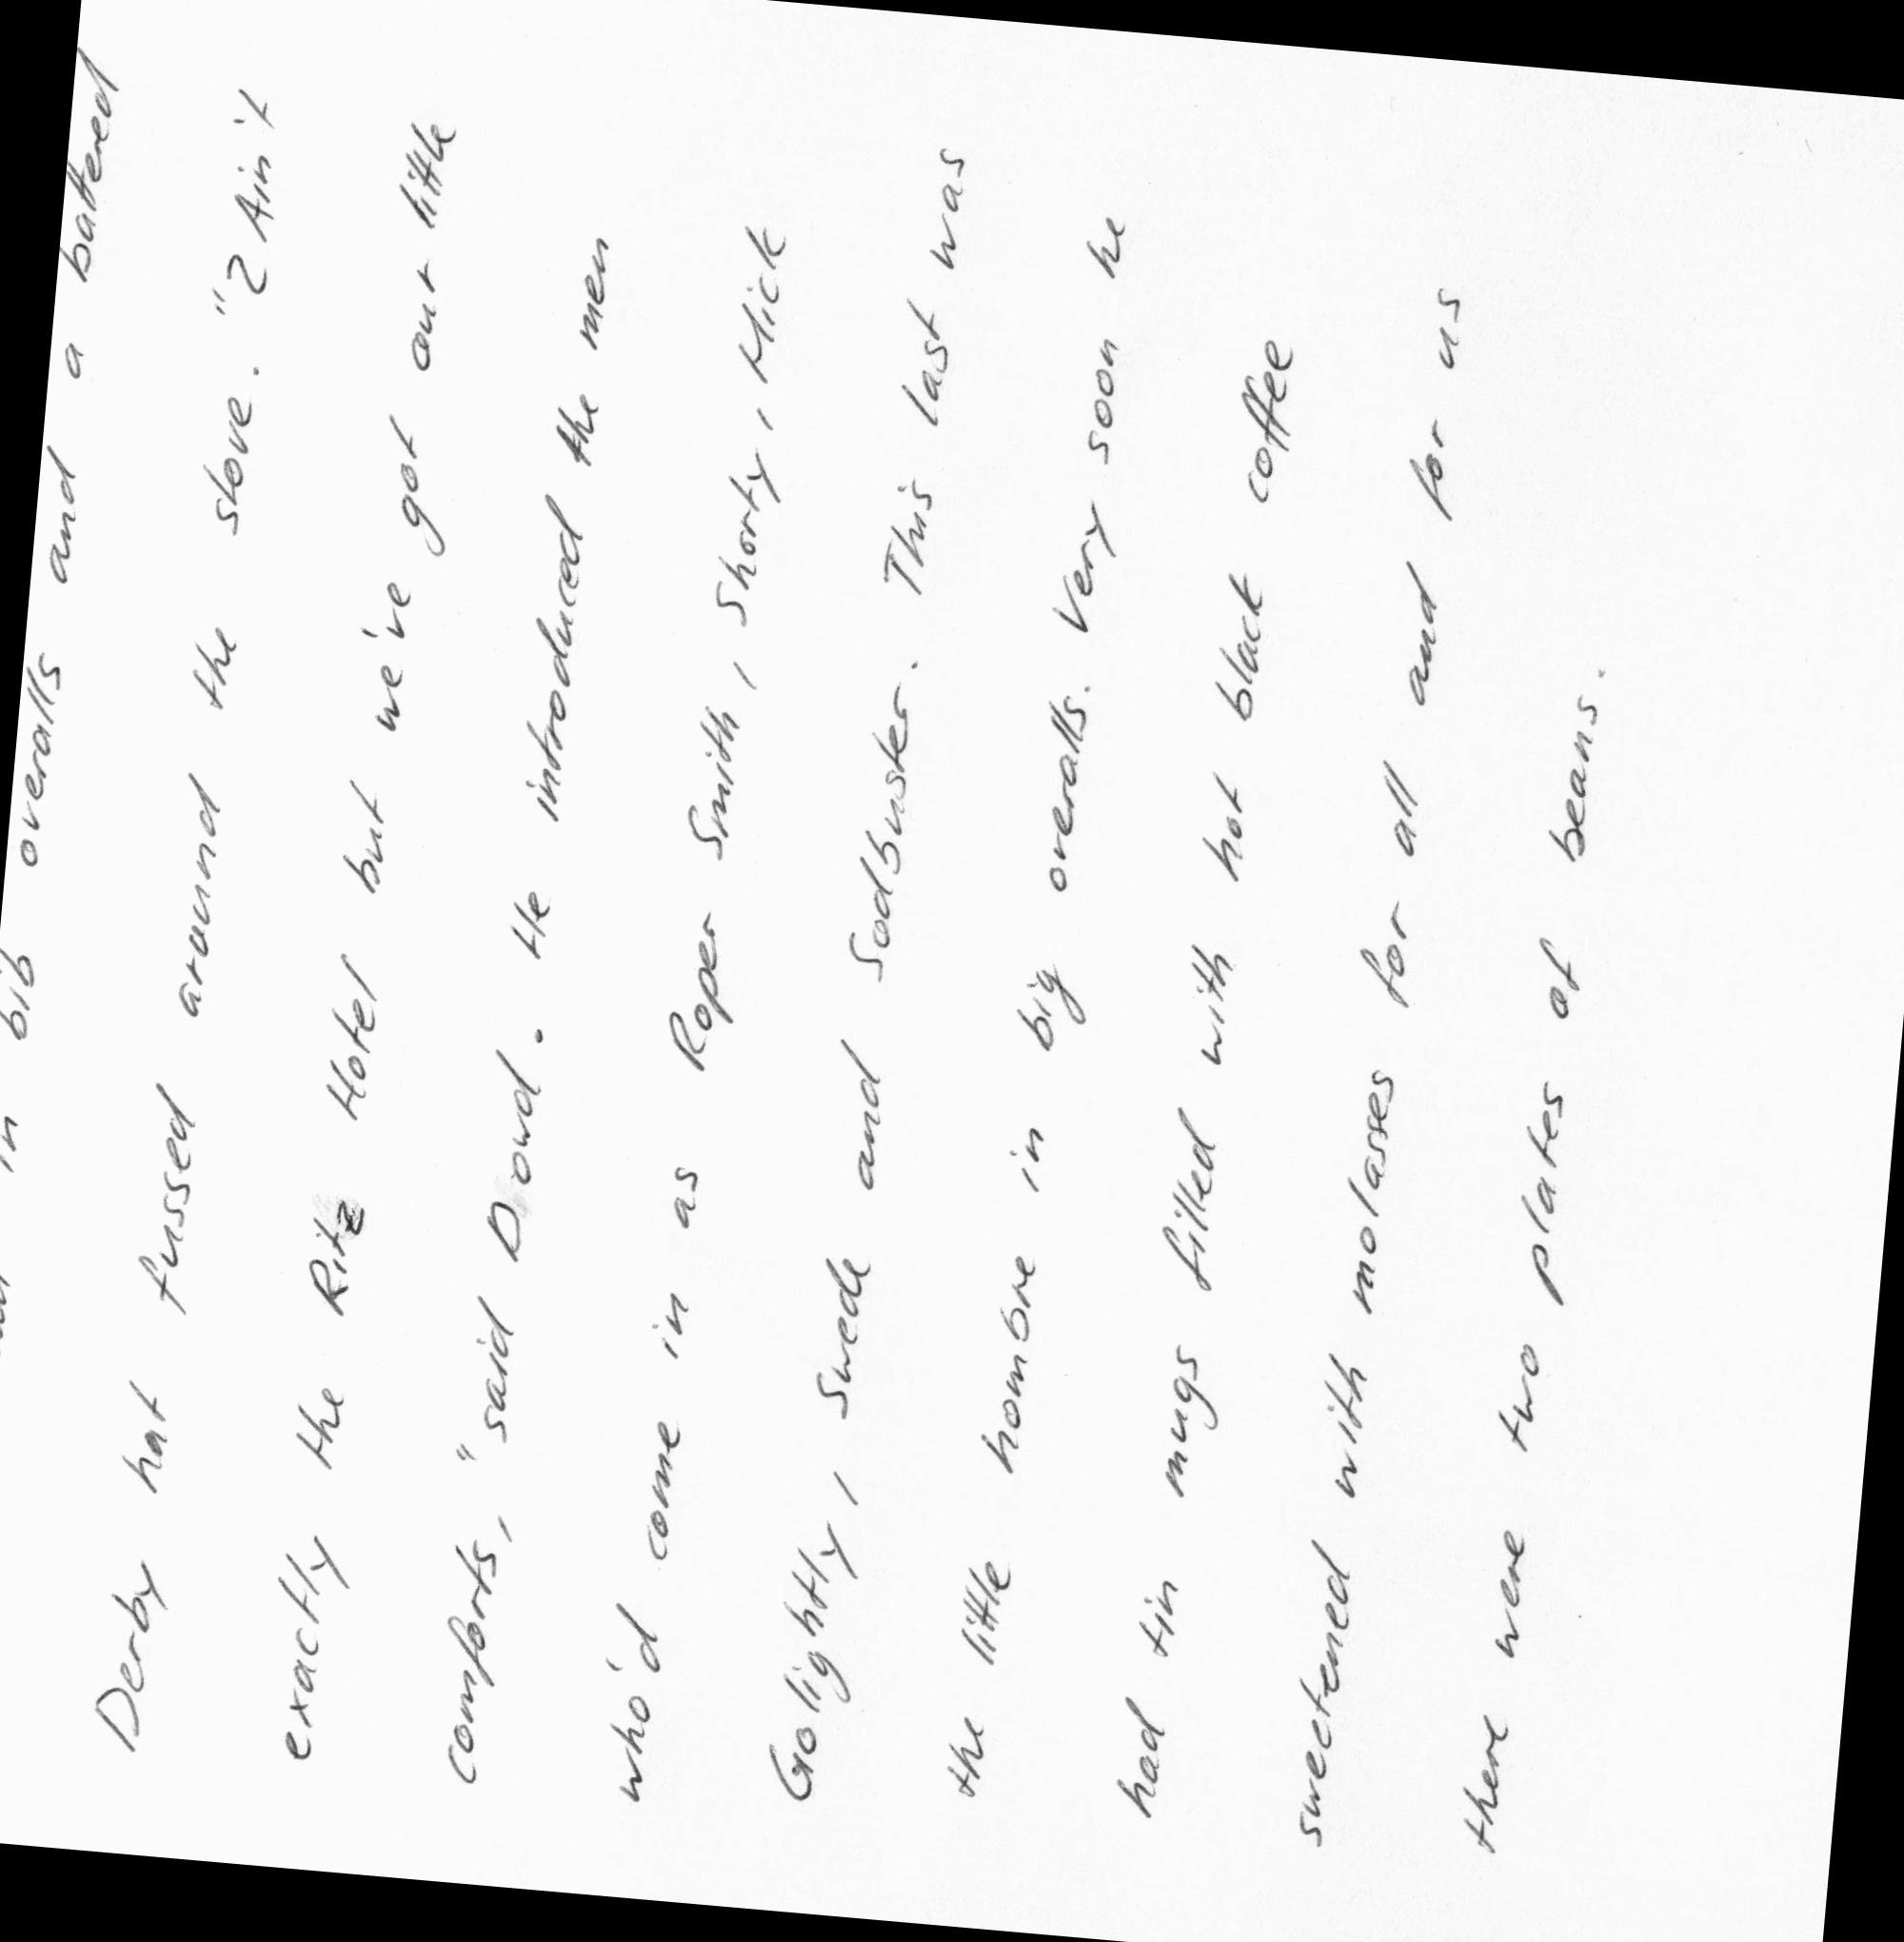 in bib overalls and a battered
Derby hat fussed around the stove. "2 Ain't
exactly the Ritz Hotel but we've got our little
comforts," said Dowd. He introduced the men
who'd come in as Roper Smith, Shorty, Mick
Golightly, Swede and Sodbuster. This last was
the little hombre in big overalls. Very soon he
had tin mugs filled with hot black coffee
sweetened with molasses for all and for us
there were two plates of beans.